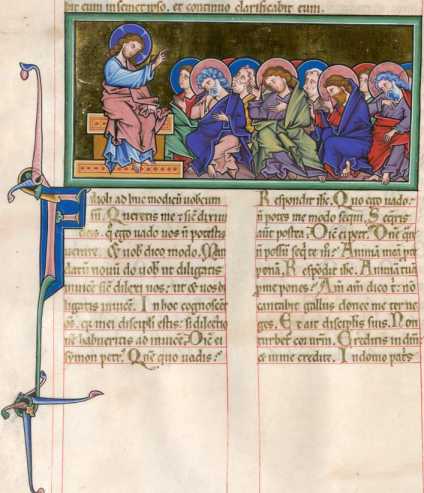 bit eum in semet ipso. et continuo clarificabit eum.
Filioli ad huc modicū uobcum
sū. Queretis me ⁊ sic dixi iu
deis. q̄ ego uado uos n̄ potestis
uenire. & uob dico modo. Man
datū nouū do uob ut diligatis
inuicē sic dilexi uos. ut & uos di
ligatis inuicē. In hoc cognoscēt
om̄s. q̄a mei discipl̄i estis: si dilectio
nē habueritis ad inuicē. Dic̄ ei
symon petr̄. Dn̄e quo uadis?
Respondit ihc̄. Quo ego uado.
n̄ potes me modo sequi. Seq̄ris
aut̄ postea. Dic̄ ei petr̄. Dn̄e q̄re
n̄ possū seq̄ te m̄? Animā meā p̄ te
ponā. Respōdit ihc̄. Animā tuā
p̄ me pones? Am̄ am̄ dico t̄. nō
cantabit gallus donec me ter ne
ges. Et ait discipl̄is suis. Non
turbet̄ cor ur̄m. Creditis in dm̄
& in me credite. In domo patr̄s